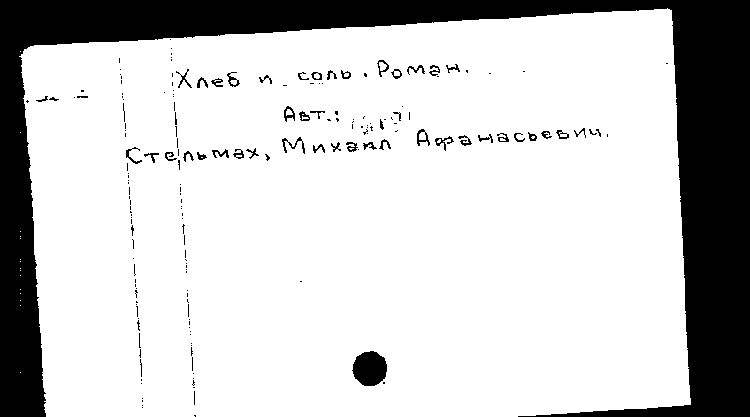 Хлеб и соль. Роман.
Авт.:
Стельмах, Михаил Афанасьевич.